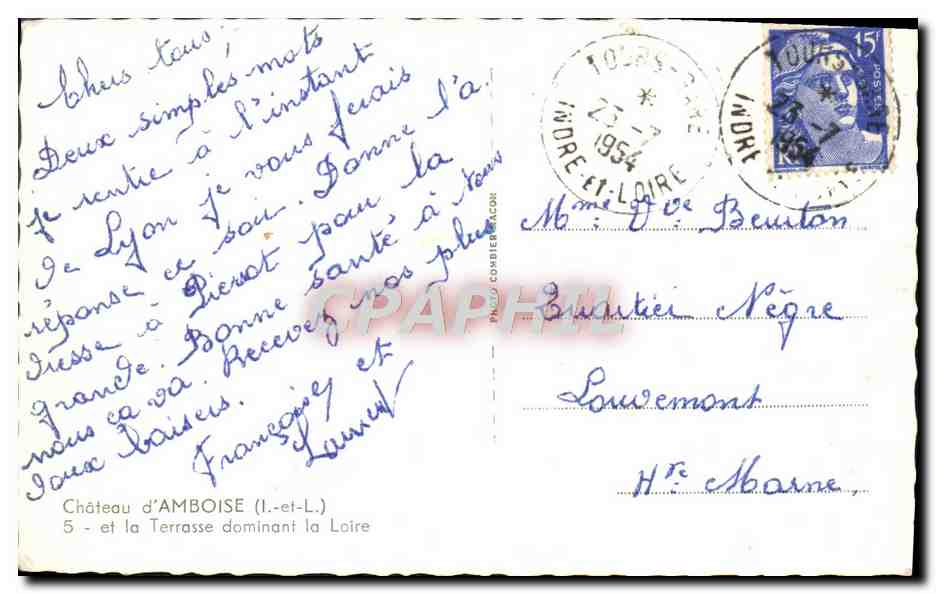 Chers tous,
Deux simples mots
je rentre à l'instant
de Lyon je vous ferais
réponse ce soir. Donne l'a
dresse à Pierrot pour la
grande. Bonne santé à tous
nous ça va. Recevez nos plus
doux baisers.
François et
Château d'AMBOISE (I.-et-L.)
5 - et la Terrasse dominant la Loire
PHOTO COMBIER MACON
TOURS-GARE
23-7
1954
INDRE-ET-LOIRE
15F
POSTES
TOURS-GARE
23-7
1954
INDRE
Mme Vve Beurton
Quartier Nègre
Louvemont
Hte Marne
CPAPHIL